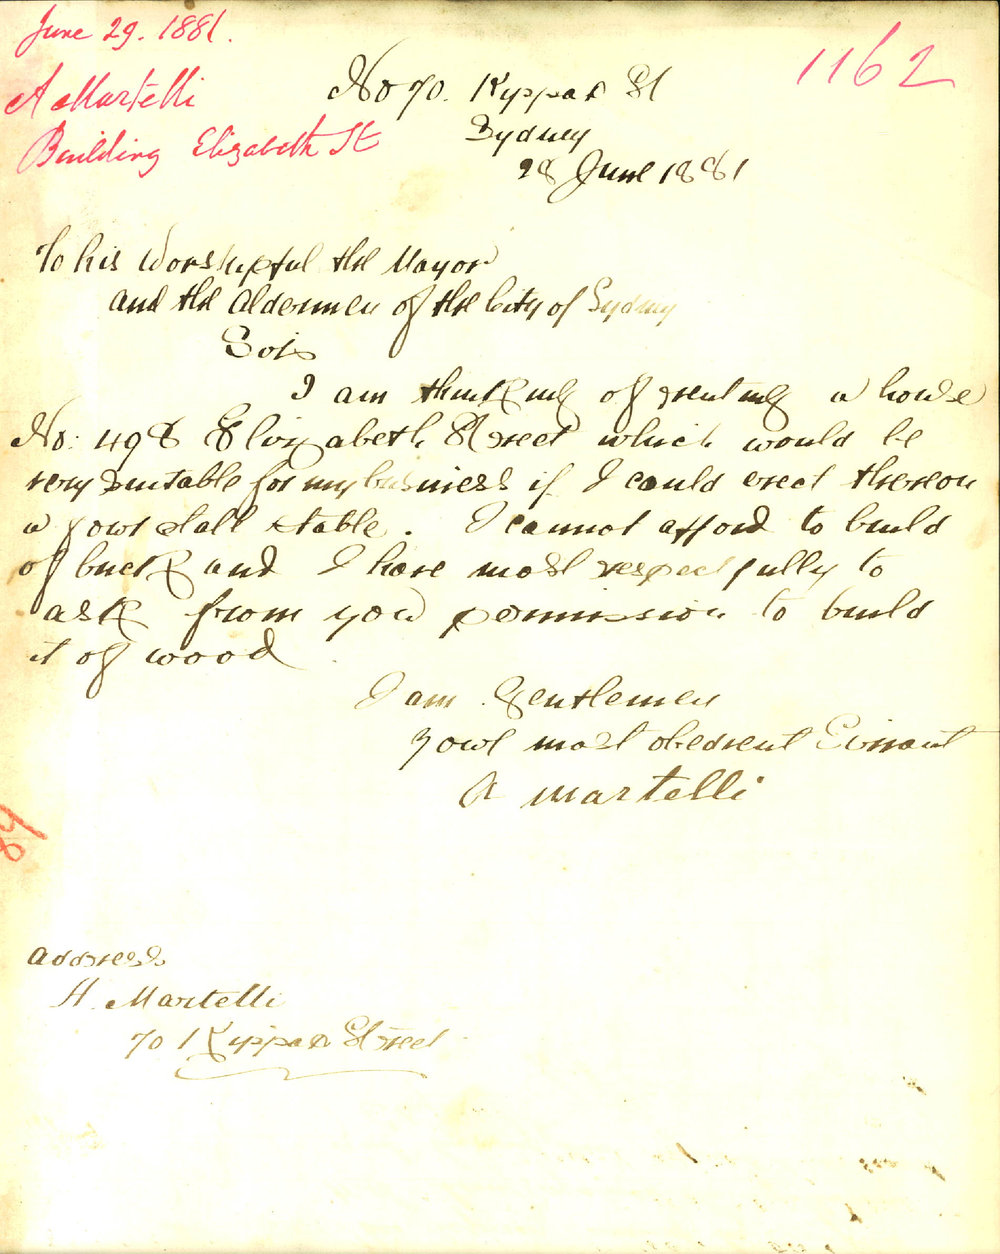 June 29. 1881.
1162
A Martelli
Building Elizabeth St
No 70. Kippax St
Sydney
28 June 1881
To his Worshipful the Mayor
and the Aldermen of the City of Sydney
Sirs
I am thinking of renting a house
No: 498 Elizabeth Street which would be
very suitable for my business if I could erect thereon
a four stall stable. I cannot afford to build
of brick and I have most respectfully to
ask from you permission to build
it of wood
I am Gentlemen
Your most obedient Servant
A Martelli
89
Address
A. Martelli
70 Kippax Street